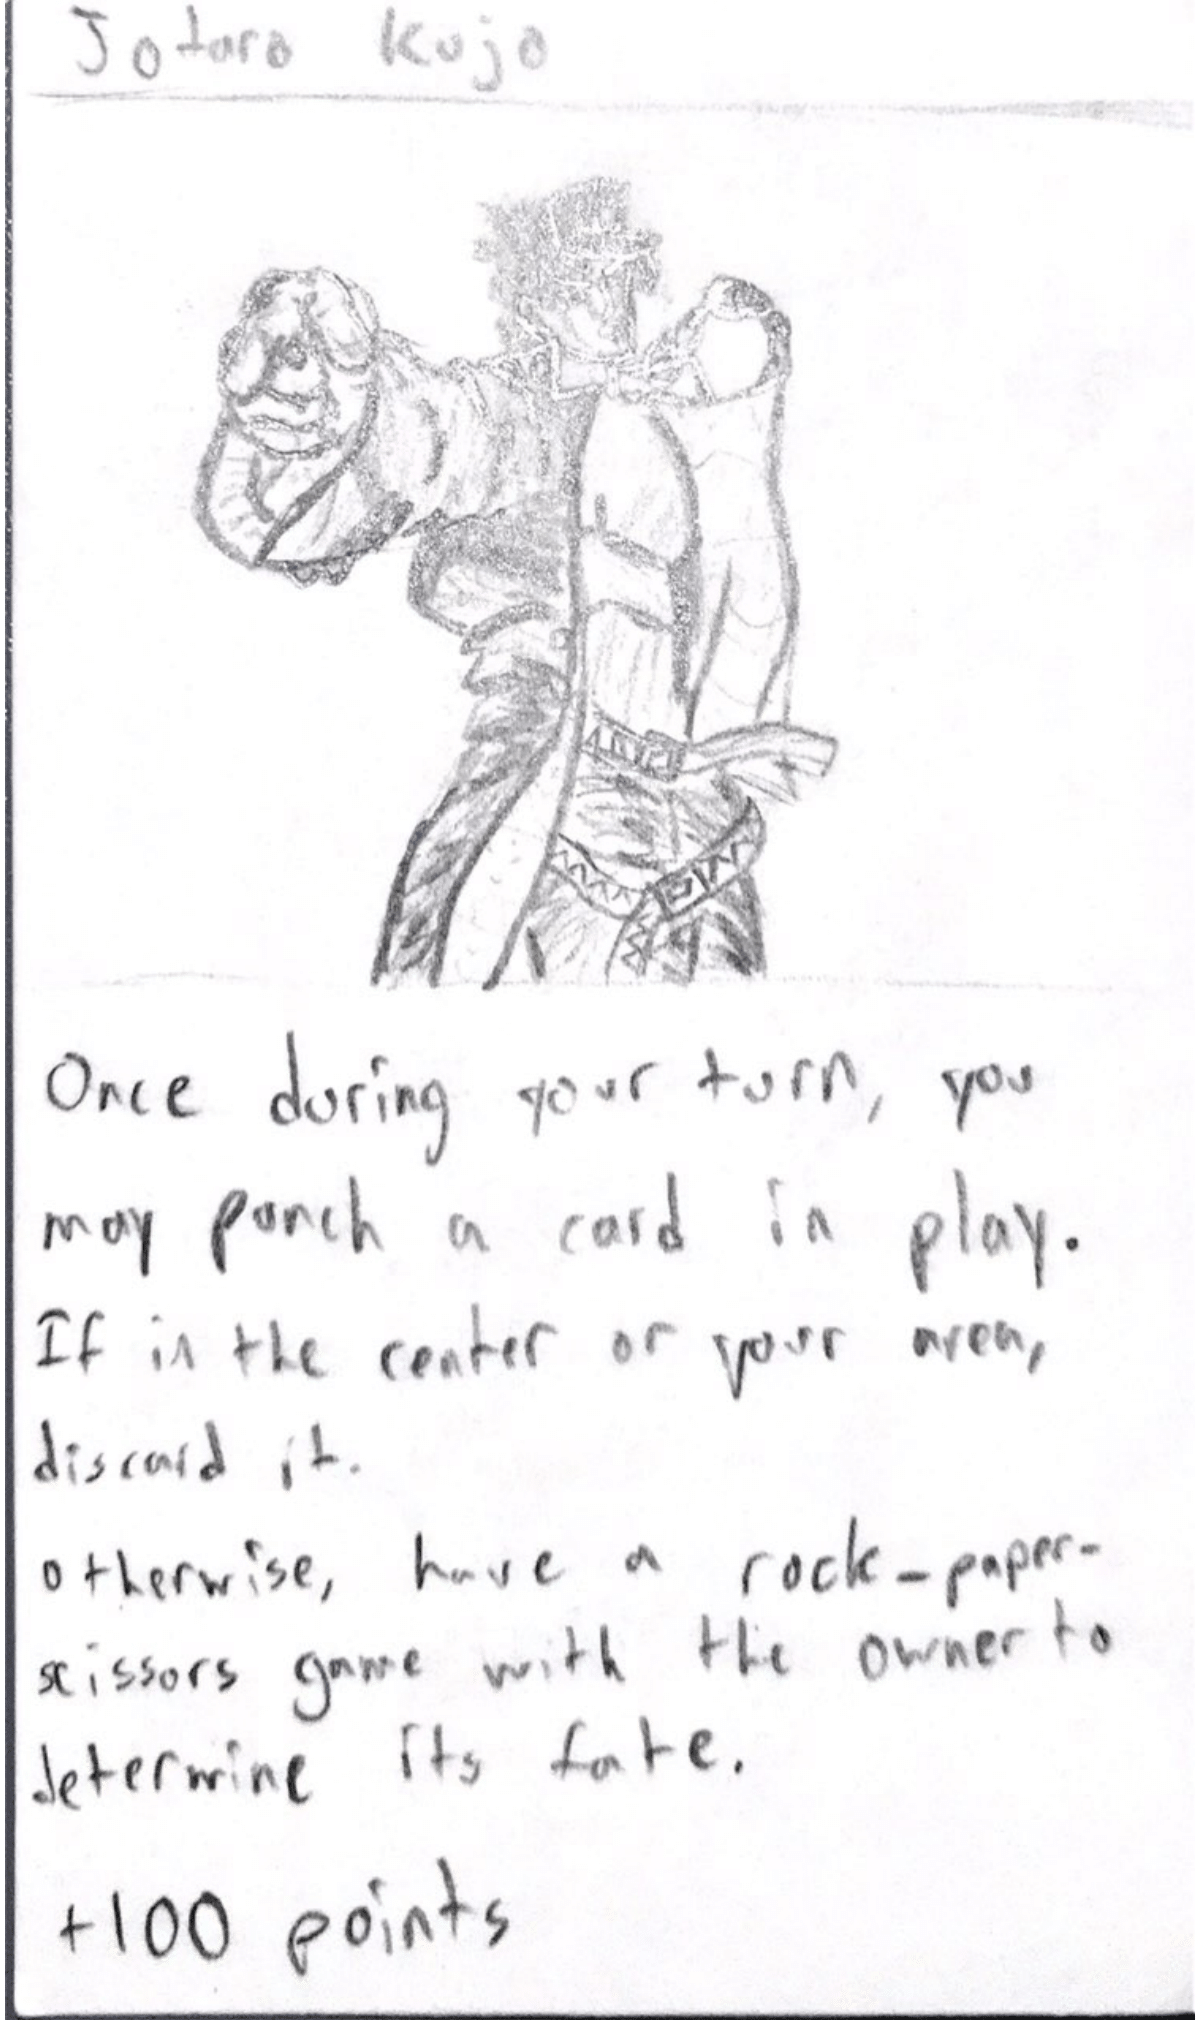 Jotaro Kujo
Once during your turn, you
may punch a card in play.
If in the center or your area,
discard it.
otherwise, have a rock-paper-
scissors game with the owner to
determine its fate.
+100 points